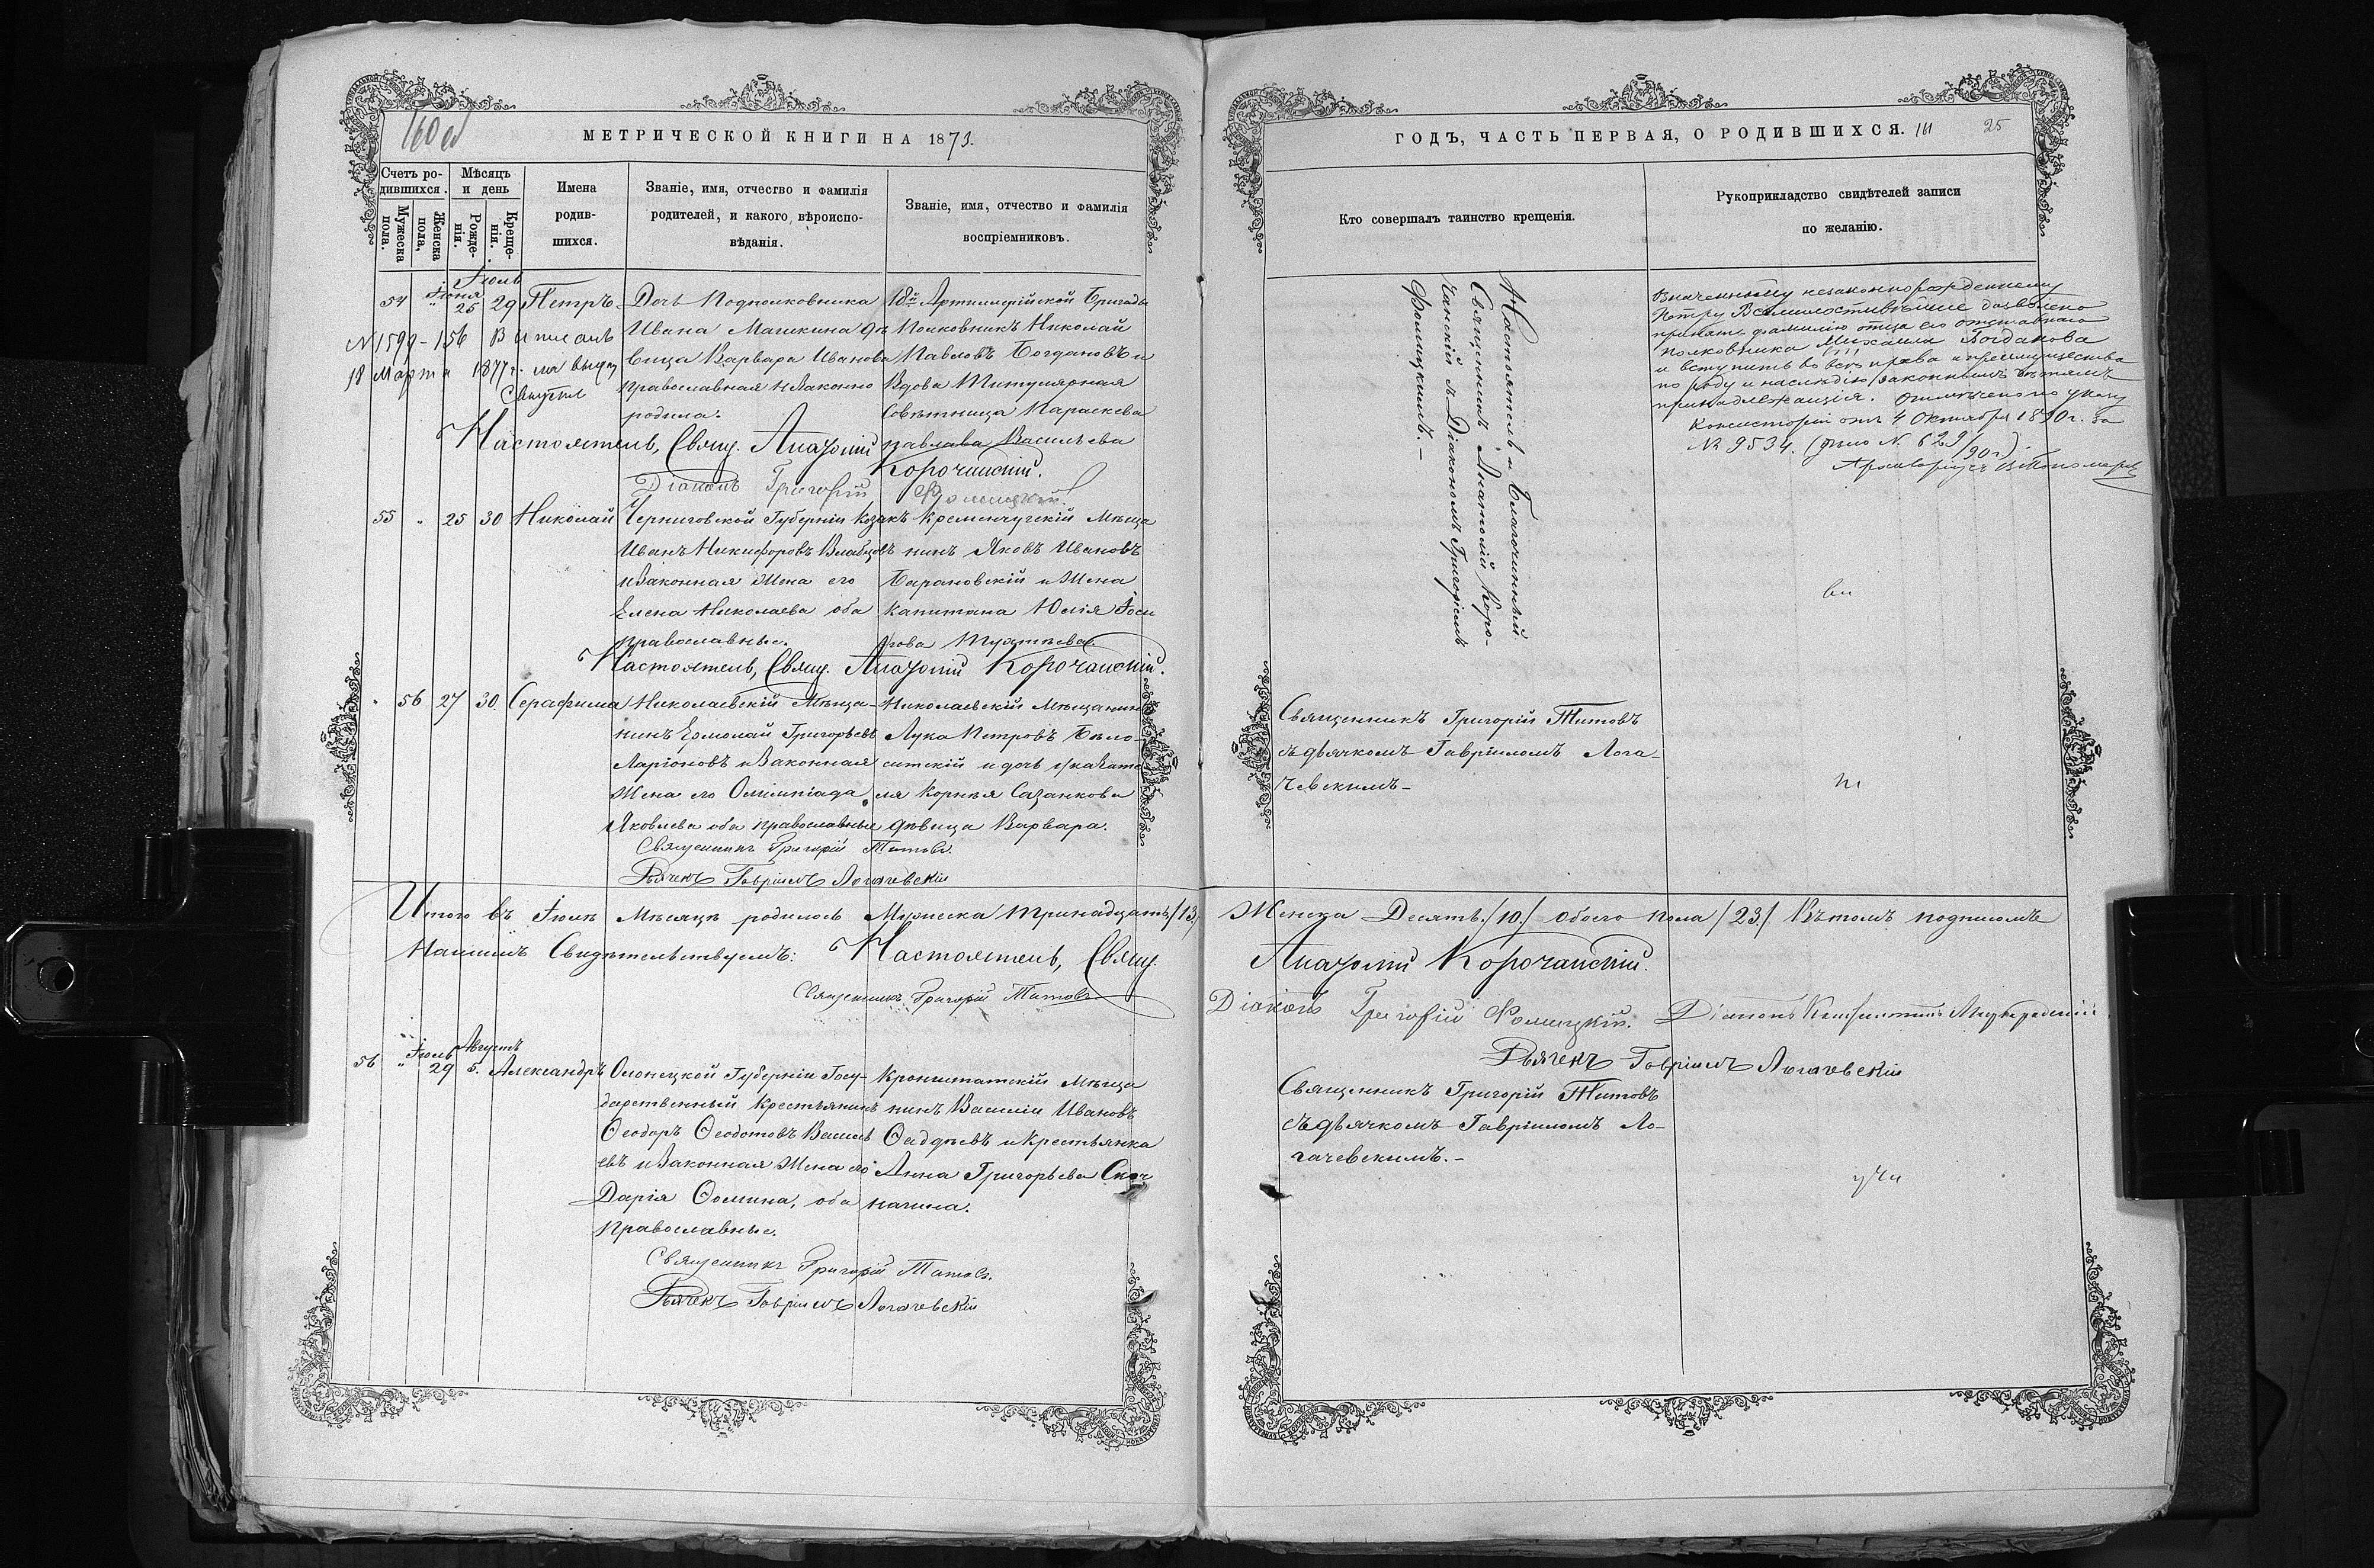 160 об
МЕТРИЧЕСКОЙ КНИГИ НА 1873.
Счетъ ро-
дившихся.
Мужеска
пола.
Женска
пола,
Мѣсяцъ
и день
Рожде-
нія.
Креще-
нія.
Имена
родив-
шихся.
Званіе, имя, отчество и фамилія
родителей, и какого вѣроиспо-
вѣданія.
Званіе, имя, отчество и фамилія
воспріемниковъ.
54 " Іюня 25 Іюль 29 Петръ
Дочь Подполковника
Ивана Машкина дѣ
вица Варвара Иванова
православная незаконно
родила.
18й Артиллерійской Бригады
Полковникъ Николай
Павловъ Богдановъ и
Вдова Титулярная
Совѣтница Параскева
Павлова Васильева
N 1599 - 156 Выписанъ
18 Марта 1877 г.
Настоятель, Свящ. Анатолій Корочанскій.
Діаконъ Григорій Фомицкій
55 " 25 30 Николай
Черниговской Губерніи Козакъ
Иванъ Никифоровъ
и законная жена его
Елена Николаева оба
православные.
Кременчугскій Мѣща
нинъ Яковъ Ивановъ
Барановскій и Жена
Капитана Юлія Іоси
фова
Настоятель, Свящ. Анатолій Корочанскій.
" 56 27 30 Серафима
Николаевскій Мѣща-
нинъ Ермолай Григорьевъ
Ларіоновъ и законная
жена его Олимпіада
Яковлева оба православные
Николаевскій Мѣщанинъ
Лука Петровъ Бѣло-
ситскій и дочь
ля Корнѣя Сазанкова
дѣвица Варвара.
Священникъ Григорій Титовъ.
Дьячекъ Гавріилъ Логачевскій
Итого въ Іюлѣ Мѣсяцѣ родилось Мужеска тринадцать /13/
Нашимъ Свидѣтельствуемъ: Настоятель, Свящ.
Священникъ Григорій Титовъ
56 " Іюль 29 Августъ 5. Александръ
Олонецкой Губерніи Госу-
дарственный Крестьянинъ
Ѳеодоръ Ѳеодотовъ Василь
евъ и законная Жена его
Дарія Ѳомина, оба
православные.
Кронштатскій Мѣща
нинъ Василій Ивановъ
Ѳаддѣевъ и крестьянка
Анна Григорьева
Священникъ Григорій Титовъ.
Дьячекъ Гавріилъ Логачевскій
ГОДЪ, ЧАСТЬ ПЕРВАЯ, О РОДИВШИХСЯ. 161 25
Кто совершалъ таинство крещенія.
Рукоприкладство свидѣтелей записи
по желанію.
Настоятель и Благочинный
Священникъ Анатолій Коро-
чанскій съ Діакономъ Григоріемъ
Фомицкимъ.-
Означенному незаконнорожденному
Петру Всемилостивѣйше дозволено
принять фамилію отца его отставнаго
полковника Михаила Богданова
и вступить во всѣ права и преимущества
по роду и наслѣдію законнымъ дѣтямъ
принадлежащія. Отмѣчено по указу
Консисторіи отъ 4 Октября 1890 г. за
№ 9534. (дѣло N. 629/90 г.)
Священникъ Григорій Титовъ
съ дьячкомъ Гавріиломъ Лога-
чевскимъ-
Женска Десять /10/ обоего пола /23/ Въ томъ подписомъ
Анатолій Корочанскій.
Діаконъ Григорій Фомицкій. Діаконъ
Дьячекъ Гавріилъ Логачевскій
Священникъ Григорій Титовъ
съ дьячкомъ Гавріиломъ Ло-
гачевскимъ.-